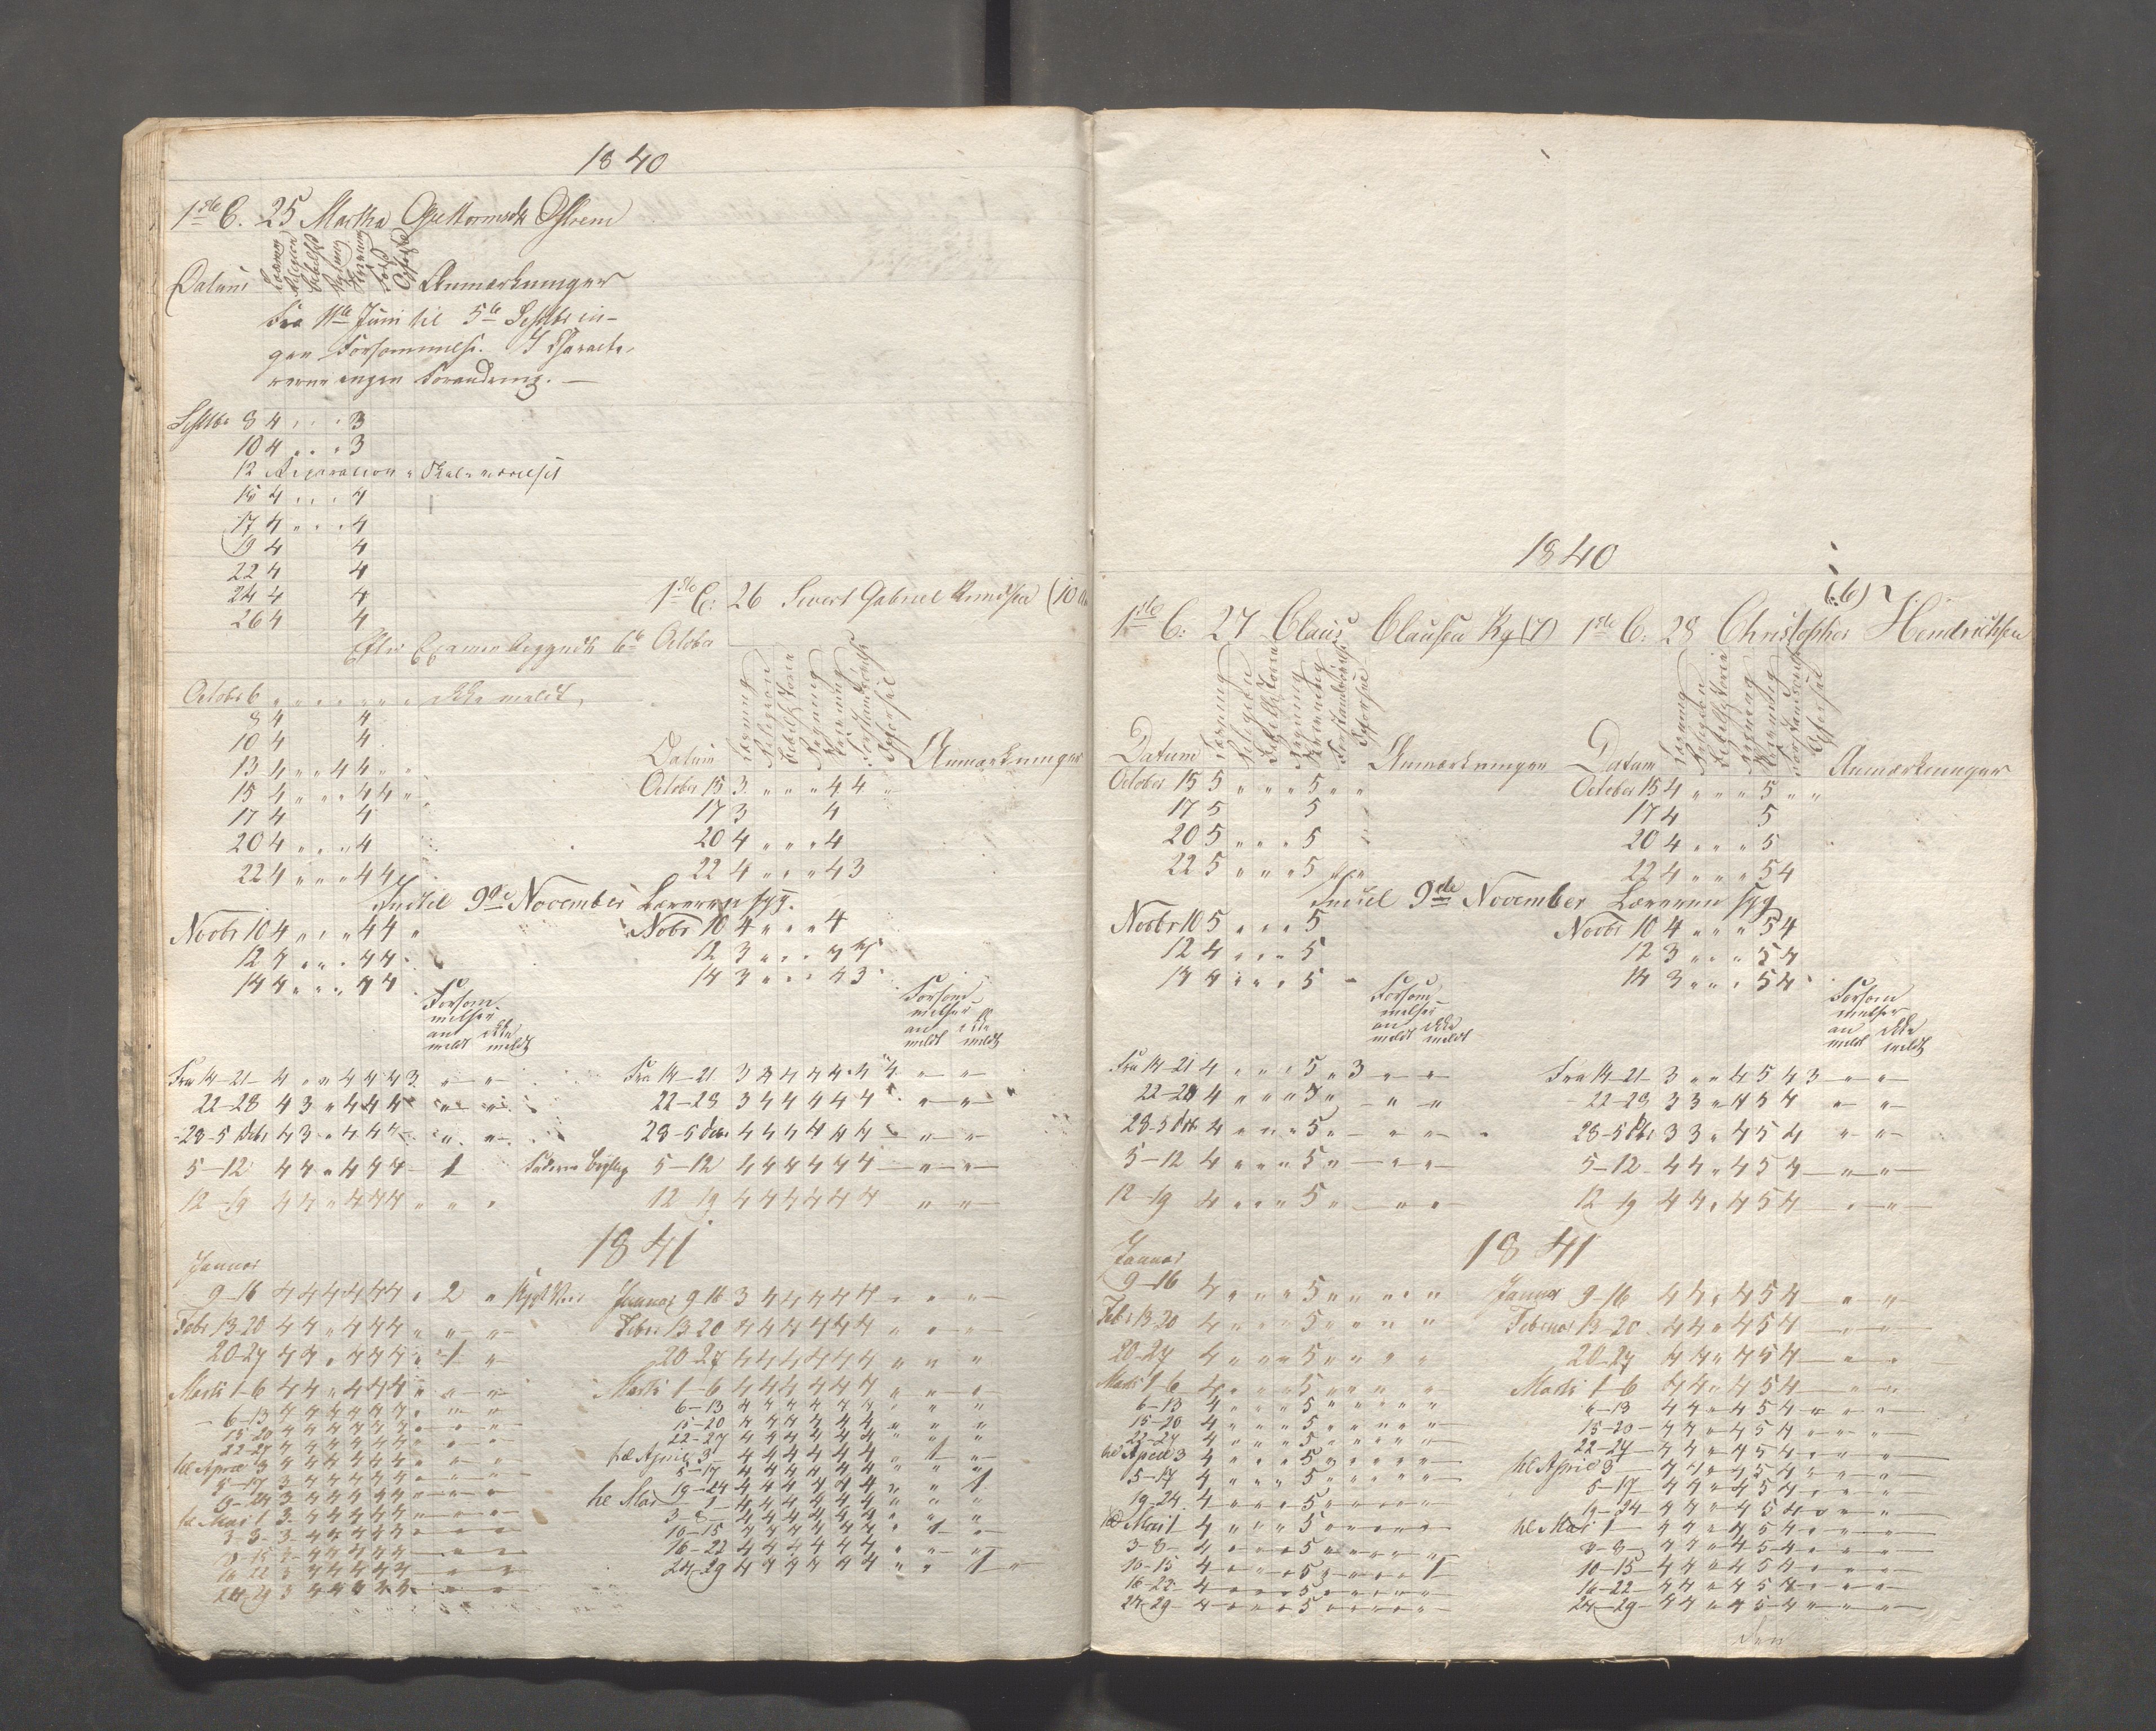 1840
1ste C. 25 Martha Guttormsdtr Østrem
Datum Læsning Religion Skrivning Opførsel Anmærkninger
Fra 11te Juni til 5te Septbr in-
gen Forsømmelse. I Characte-
rerne ingen Forandring. —
Septbr 8 4 " " " 3
10 4 " " " 3
12 Reparation Skoleværelset
15 4 " " " 4
17 4 " " " 4
19 4 4
22 4 4
24 4 4
26 4 4
Efter Examen begyndte 6te October
October 6 " " " " " " " ikke meldt
8 4 4
10 4 4
13 4 " " 4 4 " "
15 4 " " " 4 4 "
17 4 4
20 4 " " " 4
22 4 " " " 4 4
Indtil 9de November Læreren syg.
Novbr 10 4 " " " 4 4 "
12 4 " " " 4 4
14 4 " " " 4 4
Forsøm
melser
an ikke
meldt meldt
Fra 14-21 4 " " 4 4 4 3 " "
22-28 4 3 " 4 4 4 " "
28-5 Debr 4 3 " 4 4 4 " "
5-12 4 4 " 4 4 4 — 1
12-19 4 4 " 4 4 4 " " "
1841
Januar
9-16 4 4 4 4 4 4 " 2 "
Febr 13-20 4 4 " 4 4 4 " " "
20-27 4 4 " 4 4 4 " 1 "
Marts 1-6 4 4 " 4 4 4 " " "
6-13 4 4 4 4 4 4 " " "
15-20 4 4 4 4 4 4 " " "
22-27 4 4 4 4 4 4 " " "
til April 3 4 4 4 4 4 4 " " "
5-17 3 4 4 4 4 4 " " "
19-24 3 4 4 4 4 4 " " "
til Mai 1 3 4 4 4 4 4 " " "
3-8 3 4 4 4 4 4 " " "
10-15 3 4 4 4 4 4 " " "
16-22 3 4 4 4 4 4 " " "
24-29 3 4 4 4 4 4 " " "
1ste C: 26 Sivert Gabriel Knudsen (10
Datum Læsning Religion Bibelhistorie Regning Skrivning Forstandsøvelse Opførsel Anmærkninger
October 15 3 " " " 4 4 "
17 3 4
20 4 " " " 4
22 4 " " " 4 3
Novbr 10 4 " " " 4
12 3 " " " 4 4
14 3 " " " 4 3
Forsøm
melser
an ikke
meldt meldt
Fra 14-21 3 4 4 4 4 4 4 " "
22-28 3 4 4 4 4 4 " "
28-5 Debr 4 4 4 4 4 4 " "
5-12 4 4 4 4 4 4 " "
12-19 4 4 4 4 4 4 " "
Januar 9-16 3 4 4 4 4 4 " " "
Febr 13-20 4 4 4 4 4 4 " " "
20-27 4 4 4 4 4 4 " " "
Marts 1-6 4 4 4 4 4 4 " " "
6-13 4 4 4 4 4 4 " " "
15-20 4 4 4 4 4 4 " " "
22-27 4 4 4 4 4 4 " " "
til April 3 4 4 4 4 4 4 " 1 "
5-17 4 4 4 4 4 4 " " "
19-24 4 4 4 4 4 4 " " 1
til Mai 1 4 4 4 4 4 4 " " "
3-8 4 4 4 4 4 4 " " "
10-15 4 4 4 4 4 4 " 1 "
16-22 4 4 4 4 4 4 " " "
24-29 4 4 4 4 4 4 " " 1 "
1840
1ste C: 27 Claus Clausen Kg (7)
Datum Læsning Religion Bibelhistorie Regning Skrivning Forstandsøvelse Opførsel Anmærkninger
October 15 5 " " " 5 " "
17 5 5
20 5 " " " 5
22 5 " " " 5 " "
Indtil 9de November Læreren syg
Novbr 10 5 " " " 5
12 4 " " " 5
14 4 " " " 5
Forsøm
melser
an ikke
meldt meldt
Fra 14-21 4 " " " 5 " 3 " "
22-28 4 " " " 5 " — " "
28-5 Dbr 4 " " " 5 " — " "
5-12 4 " " " 5 " — " "
12-19 4 " " " 5 " — " "
1841
Januar
9-16 4 " " " 5 " " " "
Febr 13-20 4 " " " 5 " " " "
20-27 4 " " " 5 " " " "
Marts 1-6 4 " " " 5 " " " "
6-13 4 " " " 5 " " " "
15-20 4 " " " 5 " " " "
22-27 4 " " " 5 " " " "
til April 3 4 " " " 5 " " " "
5-17 4 " " " 5 " " " "
19-24 4 " " " 5 " " " "
til Mai 1 4 " " " 5 " " " "
3-8 4 " " " 5 " " " "
10-15 4 " " " 5 " " " 1
16-22 4 " " " 5 " " " "
24-29 4 " " " 5 " " " "
(6)
1ste C: 28 Christopher Hendrichsen
Datum Læsning Religion Bibelhistorie Regning Skrivning Forstandsøvelse Opførsel Anmærkninger
October 15 4 " " " 5 " "
17 4 5
20 4 " " " 5
22 4 " " " 5 4
Novbr 10 4 " " " 5 4
12 3 " " " 5 4
14 3 " " " 5 4
Forsøm
melser
an ikke
meldt meldt
Fra 14-21 3 " " 4 5 4 3 " "
22-28 3 3 " 4 5 4 " "
28-5 Dbr 3 3 " 4 5 4 " "
5-12 4 4 " 4 5 4 " "
12-19 4 4 " 4 5 4 " "
Januar 9-16 4 4 " 4 5 4 " "
Februar 13-20 4 4 " 4 5 4 " "
20-27 4 4 " 4 5 4 " "
Marts 1-6 4 4 " 4 5 4 " "
6-13 4 4 " 4 5 4 " " "
15-20 4 4 " 4 5 4 " " "
22-27 4 4 " 4 5 4 " " "
til April 3 4 4 " 4 5 4 " " "
5-17 4 4 " 4 5 4 " " "
19-24 4 4 " 4 5 4 " " "
til Mai 1 4 4 " 4 5 4 " " "
3-8 4 4 " 4 5 4 " " "
10-15 4 4 " 4 5 4 " " "
16-22 4 4 " 4 5 4 " " "
24-29 4 4 " 4 5 4 " " "